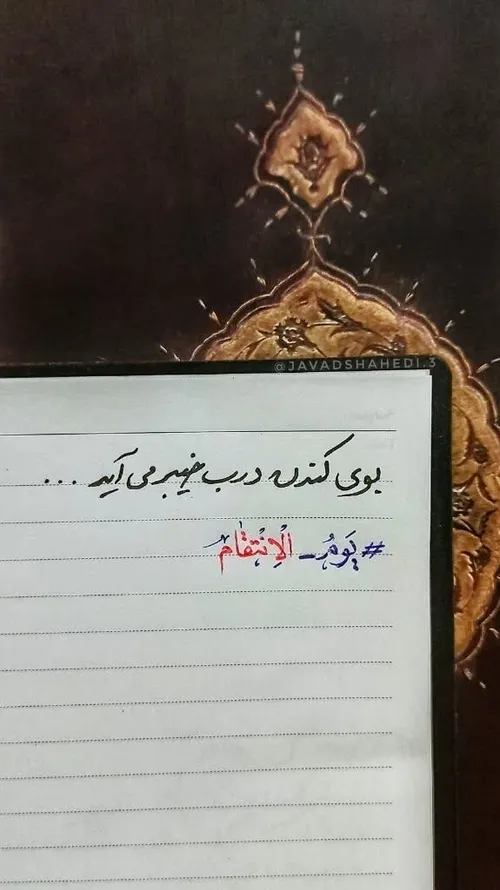 @JAVADSHAHEDI.3
بوی کندن درب خیبر می آید ...
#یَومُ_الاِنْتِقٰامْ